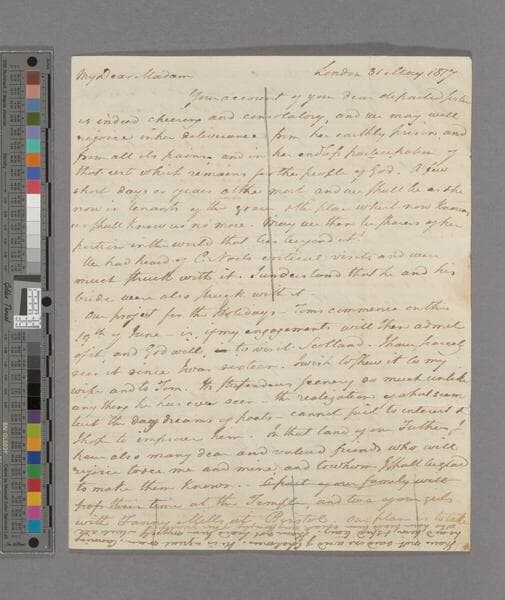 My Dear Madam London 31 May 1817
Your account of your dear departed Sister
is indeed cheering and consolatory, and we may well
rejoice in her deliverance from her earthly prison and
from all its pains and in her endless participation of
that rest which remains for the people of God. A few
short days or years at the most and we shall be as she
now is tenants of the grave the place which now knows
us shall know us no more. May we then be sharers of her
portion in the world that lies beyond it
We had heard of visits and were
much struck with it. I understand that he and his
bride were also struck with it
Our project for the Holidays - Toms commence on the
19th of June - is if my engagements will then admit
of it, and God will, - to visit Scotland. I have scarcely
seen it since I was sixteen. I wish to shew it to my
wife and to Tom. Its stupendous scenery so much unlike
any thing he has ever seen - the realization of what seem
but the day dreams of poets - cannot fail to interest &
I hope to improve him. In that land of our Fathers I
have also many dear and valued friends who will
rejoice to see me and mine, and to whom I shall be glad
to make them known. I expect your family will
pass their time at the Temple, and two of your girls
with Fanny Mills at Bristol. Our plan is to take